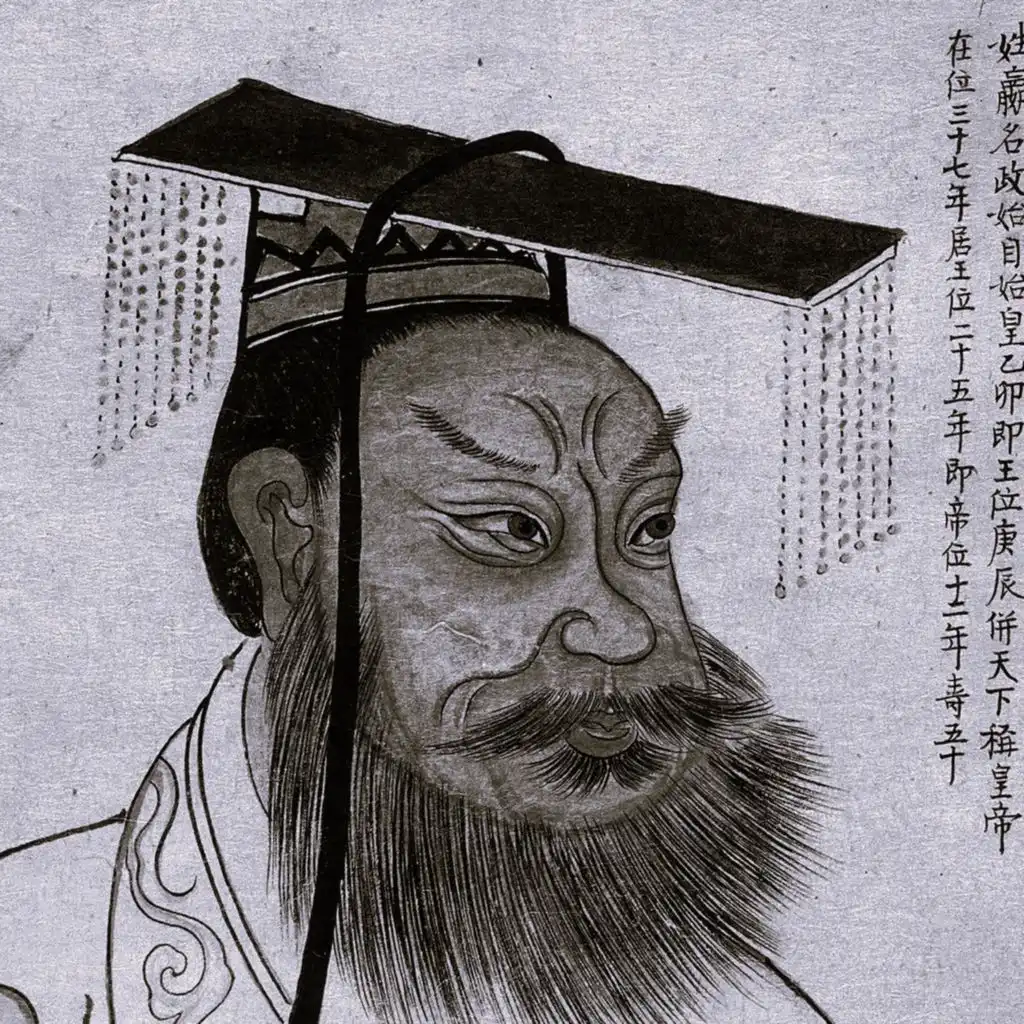 姓嬴名政始自始皇乙卯即王位庚辰併天下稱皇帝
在位三十七年居王位二十五年即帝位十二年壽五十